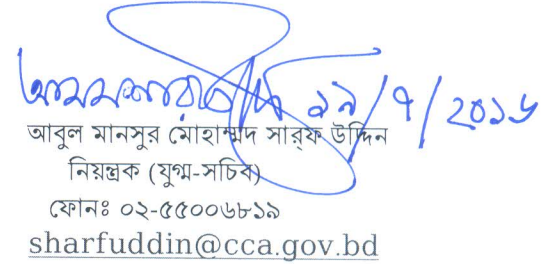 ১৯/৭/২০১৬
আবুল মানসুর মোহাম্মদ সারফ উদ্দিন
নিয়ন্ত্রক (যুগ্ম-সচিব)
ফোনঃ ০২-৫৫০০৬৮১৯
sharfuddin@cca.gov.bd